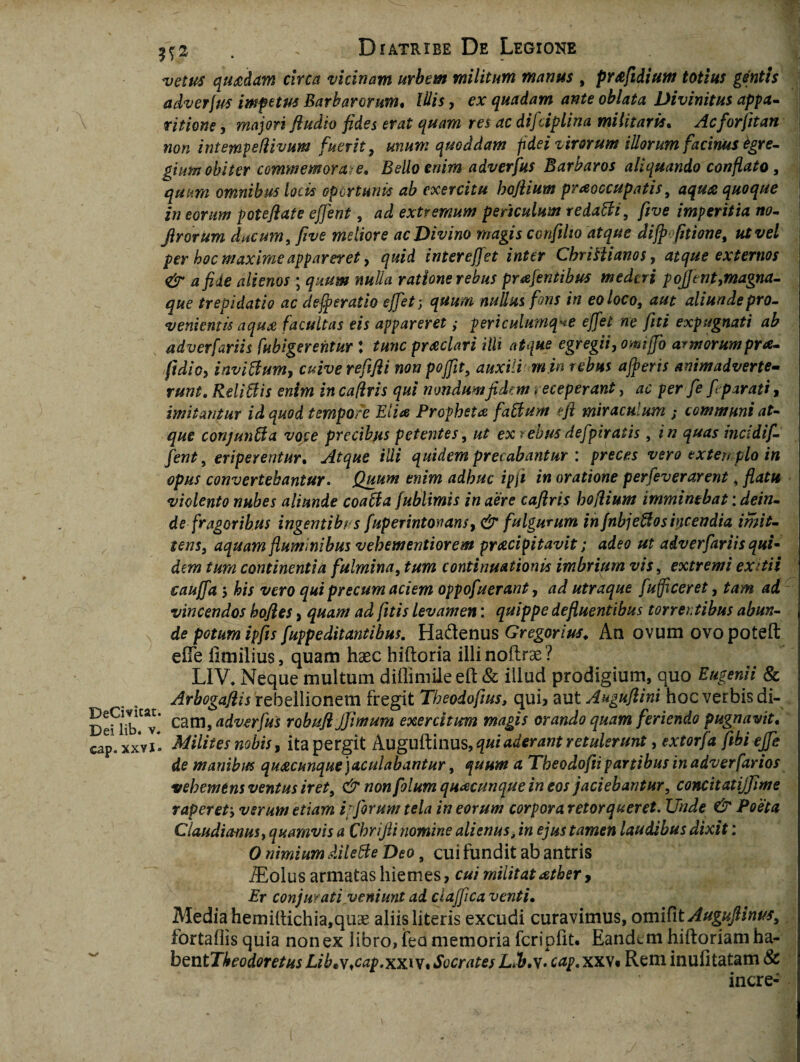 352 . DIATRIBE DE LEGIONE
vetus quædam circa vicinam urbem militum manus, præsidium totius gentis
adversus impetus Barbarorum. Illis, ex quadam ante oblata Divinitus appa-
ritione, majori studio fides erat quam res ac disciplina militaris. Ac forsitan
non intempestivum fuerit, unum quoddam fidei virorum illorum facinus egre-
gium obiter commemorare. Bello enim adversus Barbaros aliquando conflato,
quum omnibus locis oportunis ab exercitu hostium præoccupatis, aquæ quoque
in eorum potestate essent, ad extremum periculum redacti, sive imperitia no-
strorum ducum, sive meliore ac Divino magis consilio atque dispositione, ut vel
per hoc maxime appareret, quid interesset inter Christianos, atque externos
& a fide alienos; quum nulla ratione rebus præsentibus mederi possent, magna-
que trepidatio ac desperatio esset; quum nullus fons in eo loco, aut aliunde pro-
venientis aquæ facultas eis appareret; periculumque esset ne siti expugnati ab
adversariis subigerentur: tunc præclari illi atque egregii, omisso armorum præ-
sidio, invictum, cui ve resisti non possit, auxilium in rebus asperis animadverte-
runt. Relictis enim in castris qui nondum fidem receperant, ac per se separati,
imitantur id quod tempore Eliæ Prophetæ factum est miraculum; communi at-
que conjuncta voce precibus petentes, ut ex rebus despiratis, in quas incidis-
sent, eriperentur. Atque illi quidem precabantur: preces vero extemplo in
opus convertebantur. Quum enim adhuc ipsi in oratione perseverarent, flatu
violento nubes aliunde coacta sublimis in aëre castris hostium imminebat: dein-
de fragoribus ingentibus superintonans, & fulgurum in subjectos incendia imit-
tens, aquam fluminibus vehementiorem præcipitavit; adeo ut adversariis qui-
dem tum continentia fulmina, tum continuationis imbrium vis, extremi exitii
caussa; his vero qui precum aciem opposuerant, ad utraque sufficeret, tam ad
vincendos hostes, quam ad sitis levamen: quippe defluentibus torrentibus abun-
de potum ipsis suppeditantibus. Hactenus Gregorius. An ovum ovo potest
esse similius, quam hæc historia illi nostræ?
LIV. Neque multum dissimile est & illud prodigium, quo Eugenii &
Arbogastis rebellionem fregit Theodosius, qui, aut Augustini hoc verbis di-
DeCivitat.
Dei lib. v.
cap. xxvi.
cam, adversus robustissimum exercitum magis orando quam feriendo pugnavit.
Milites nobis, ita pergit Augustinus, qui aderant retulerunt, extorsa sibi esse
de manibus quæcunque jaculabantur, quum a Theodosii partibus in adversarios
vehemens ventus iret, & non solum quæcunque in eos jaciebantur, concitatissime
raperet; verum etiam ipsorum tela in eorum corpora retorqueret. Unde & Poëta
Claudianus, quamvis a Christi nomine alienus, in ejus tamen laudibus dixit:
O nimium dilecte Deo, cui fundit ab antris
Æolus armatas hiemes, cui militat æther,
Er conjurati veniunt ad classica venti.
Media hemistichia, quæ aliis literis excudi curavimus, omisit Augustinus,
fortassis quia non ex libro, sed memoria scripsit. Eandem historiam ha-
bent Theodoretus Lib. v. cap. xxiv. Socrates Lib. v. cap. xxv. Rem inusitatam &
incre-